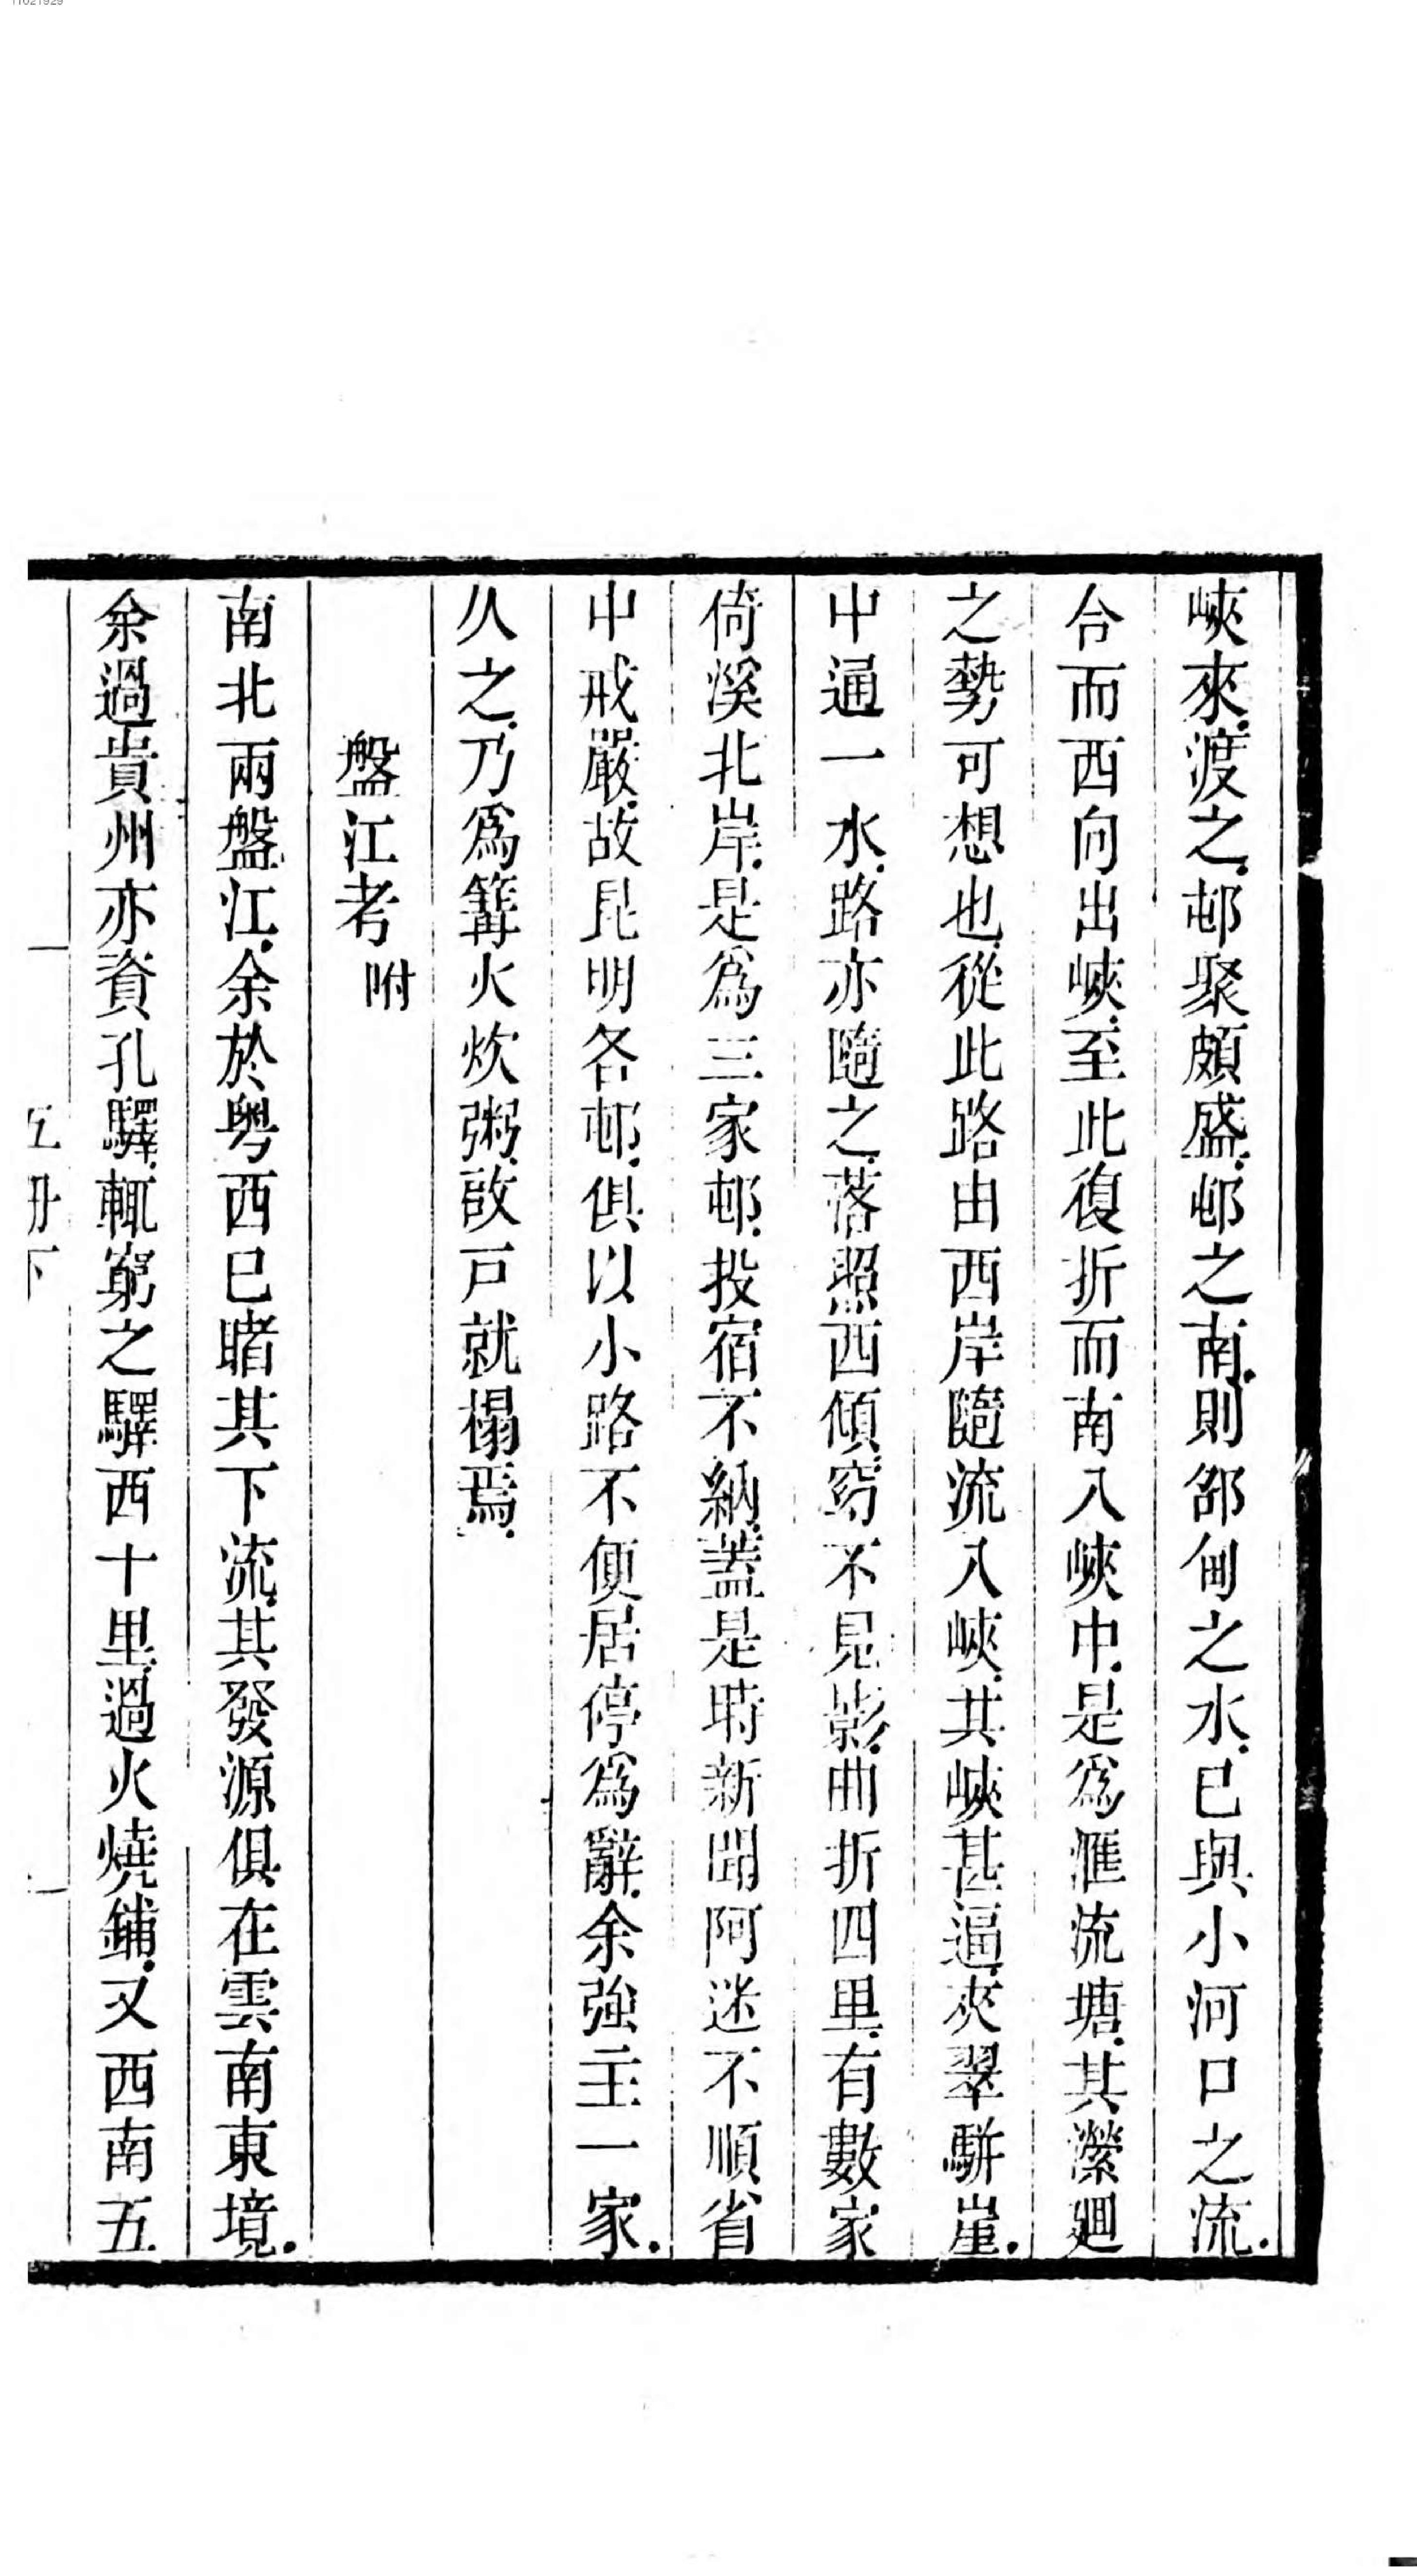 峽來.渡之.邨聚頗盛.邨之南.則邵甸之水.已與小河口之流.
合而西向出峽.至此復折而南入峽中.是為滙流塘.其瀠廻
之勢可想也.從此路由西岸隨流入峽.其峽甚逼.夾翠駢崖.
中通一水.路亦隨之.落照西傾.窈不見影.曲折四里.有數家
倚溪北岸.是為三家邨.投宿不納.蓋是時新聞阿迷不順.省
中戒嚴.故昆明各邨.俱以小路不便居停為辭.余強主一家.
久之.乃為篝火炊粥.啟戸就榻焉.
盤江考附
南北兩盤江.余於粤西已睹其下流.其發源俱在雲南東境.
余過貴州亦資孔驛.輒窮之驛西十里.過火燒鋪.又西南五
11021929